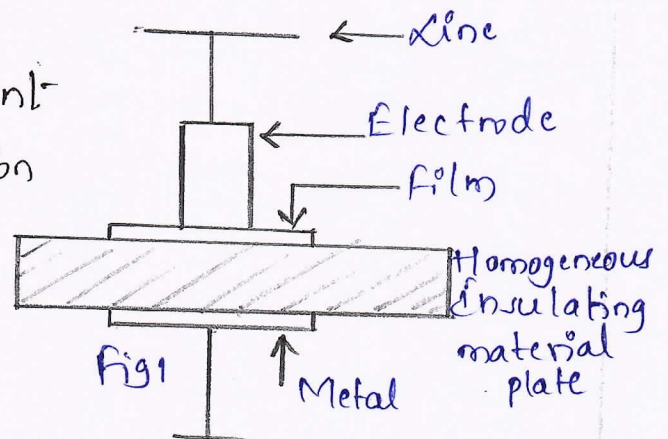 Line
Electrode
on
Film
Homogeneous
insulating
material
plate
Fig1
Metal